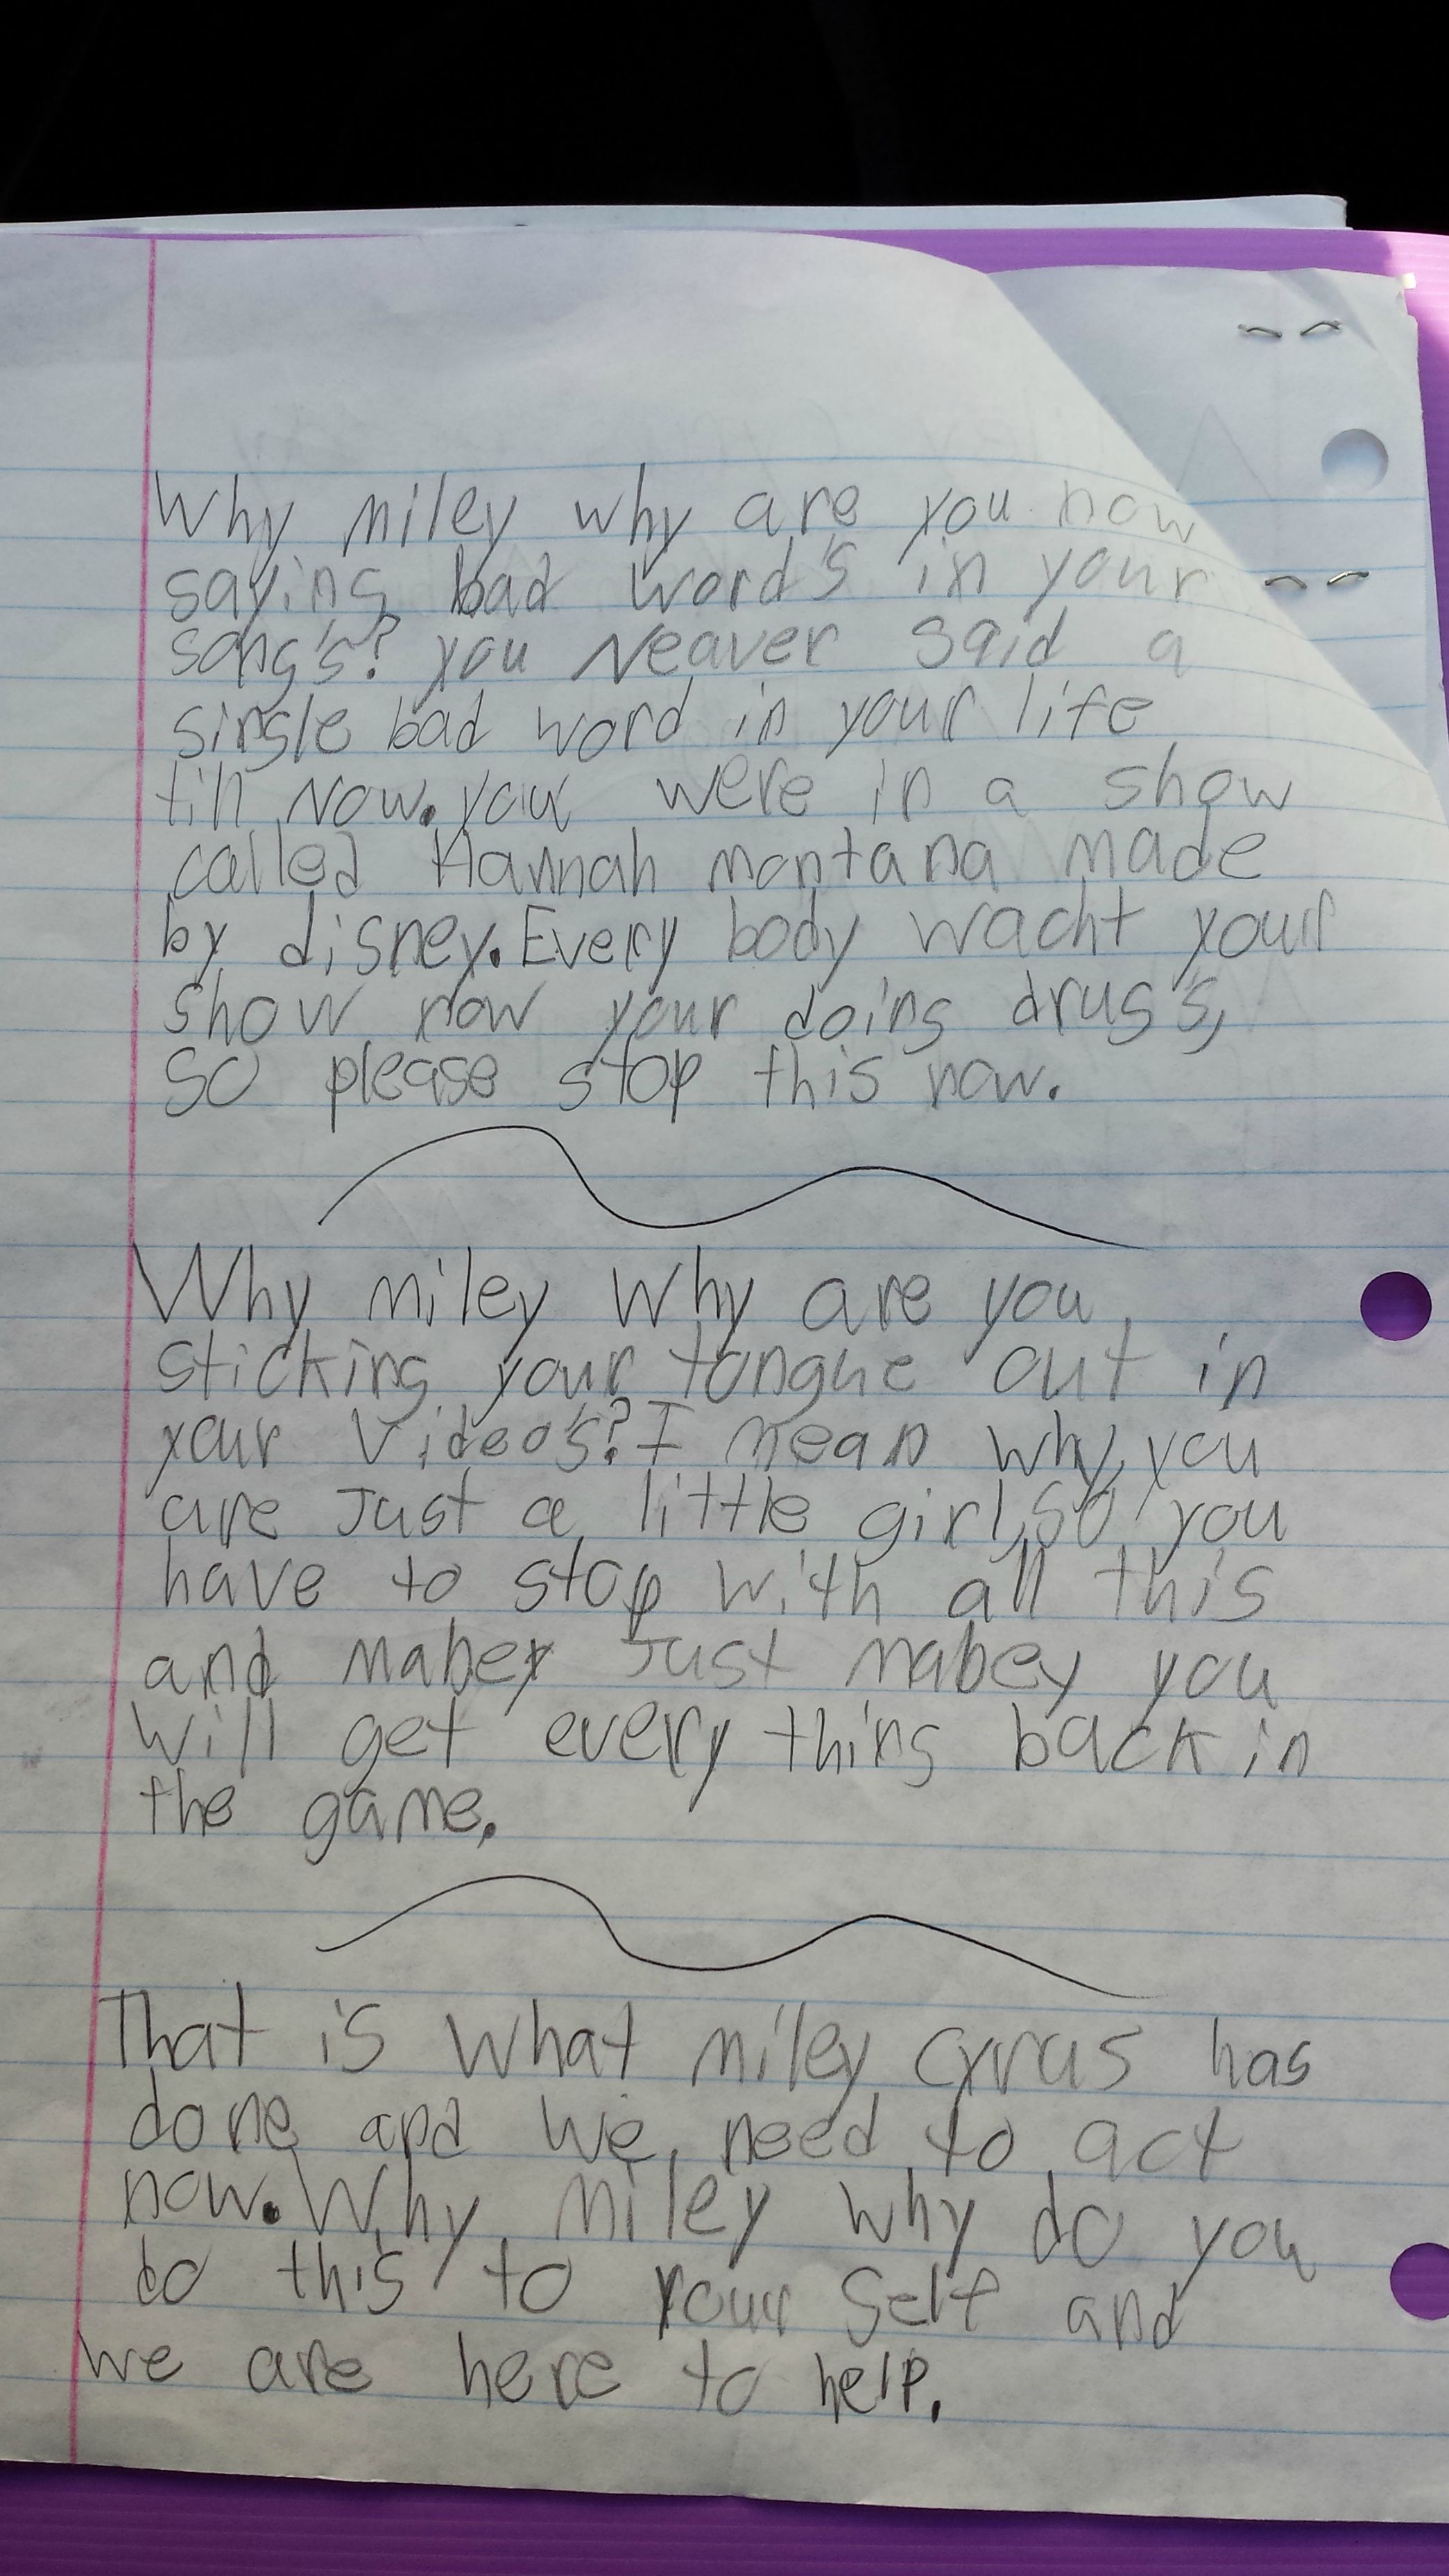 Why miley why are you now
saying bad word's in your
song's? you Neaver said a
single bad word in your life
till Now. you were in a show
called Hannah montana made
by disney. Every body wacht your
show now your doing drug's,
so please stop this now.
Why miley why are you
sticking your tongue out in
your video's? I mean why, you
are Just a little girl, so you
have to stop with all this
and mabey Just mabey you
will get every thing back in
the game.
That is what miley cyrus has
done and we need to act
now. Why miley why do you
do this to your self and
we are here to help.